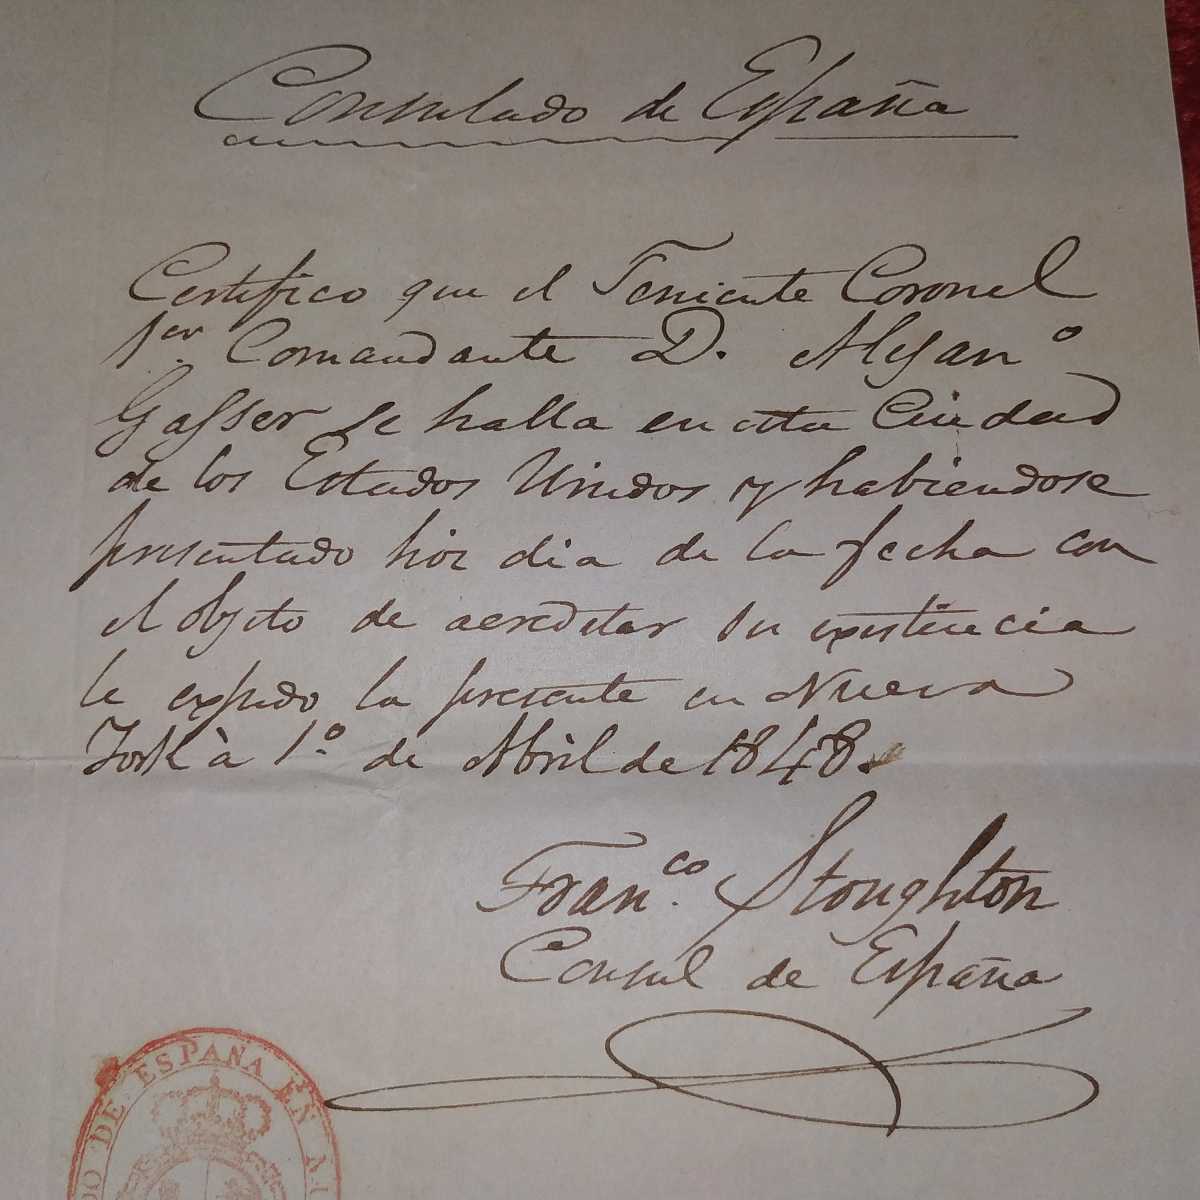 Consulado de España
Certifico que el Teniente Coronel
1er. Comandante D. Alejanº
Gasser se halla en esta Ciudad
de los Estados Unidos y habiendose
presentado hoi dia de la fecha con
el objeto de acreditar su existencia
le expido la presente en Nueva
York à 1º de Abril de 1848.
Franco. Stoughton
Consul de España
DO DE ESPAÑA EN